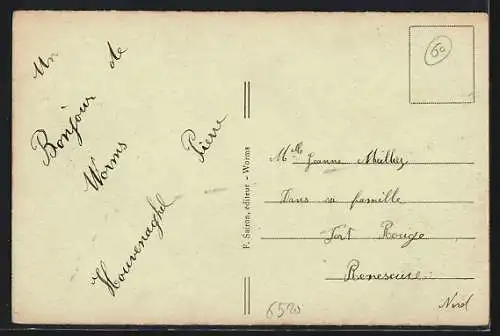 Un
Bonjour
de
Worms
Pierre
Houvenaghel
F. Sairon, éditeur - Worms
Mlle Jeanne
Dans sa famille
Fort Rouge
Renescure
Nord
60
6520